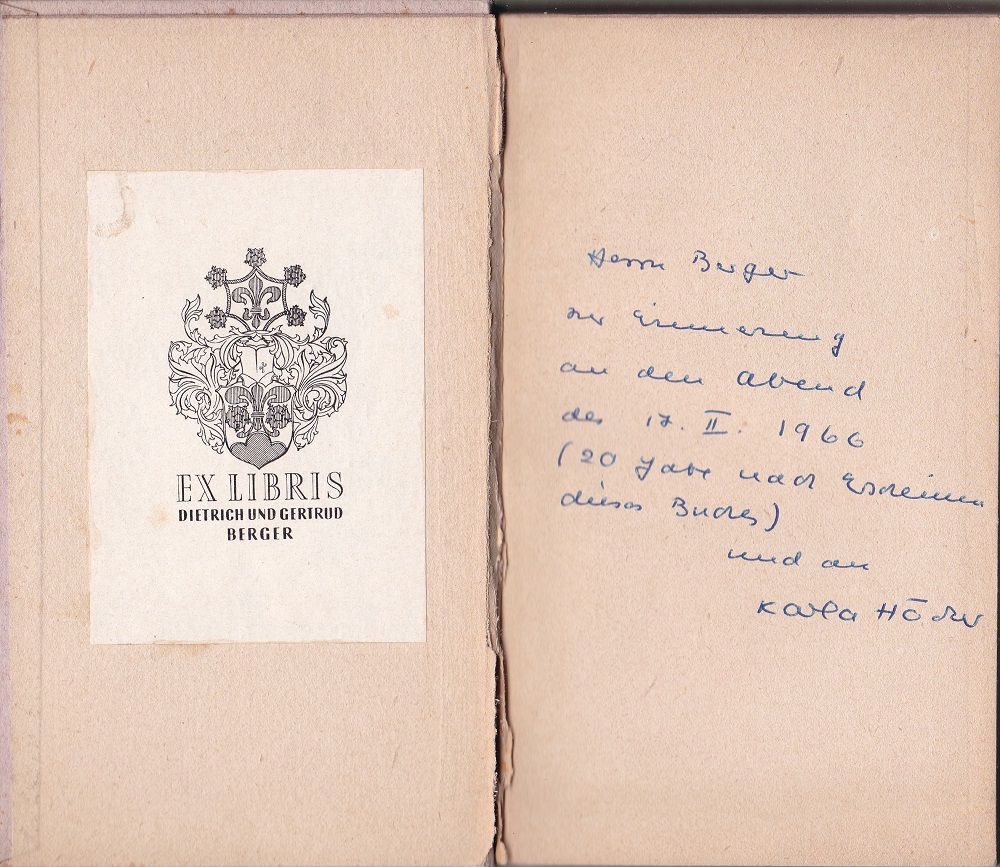 EX LIBRIS
DIETRICH UND GERTRUD
BERGER
Herrn Berger
zur Erinnerung
an den Abend
des 17. II. 1966
(20 Jahre nach Erscheinen
dieses Buches)
und an
Karla Höcker